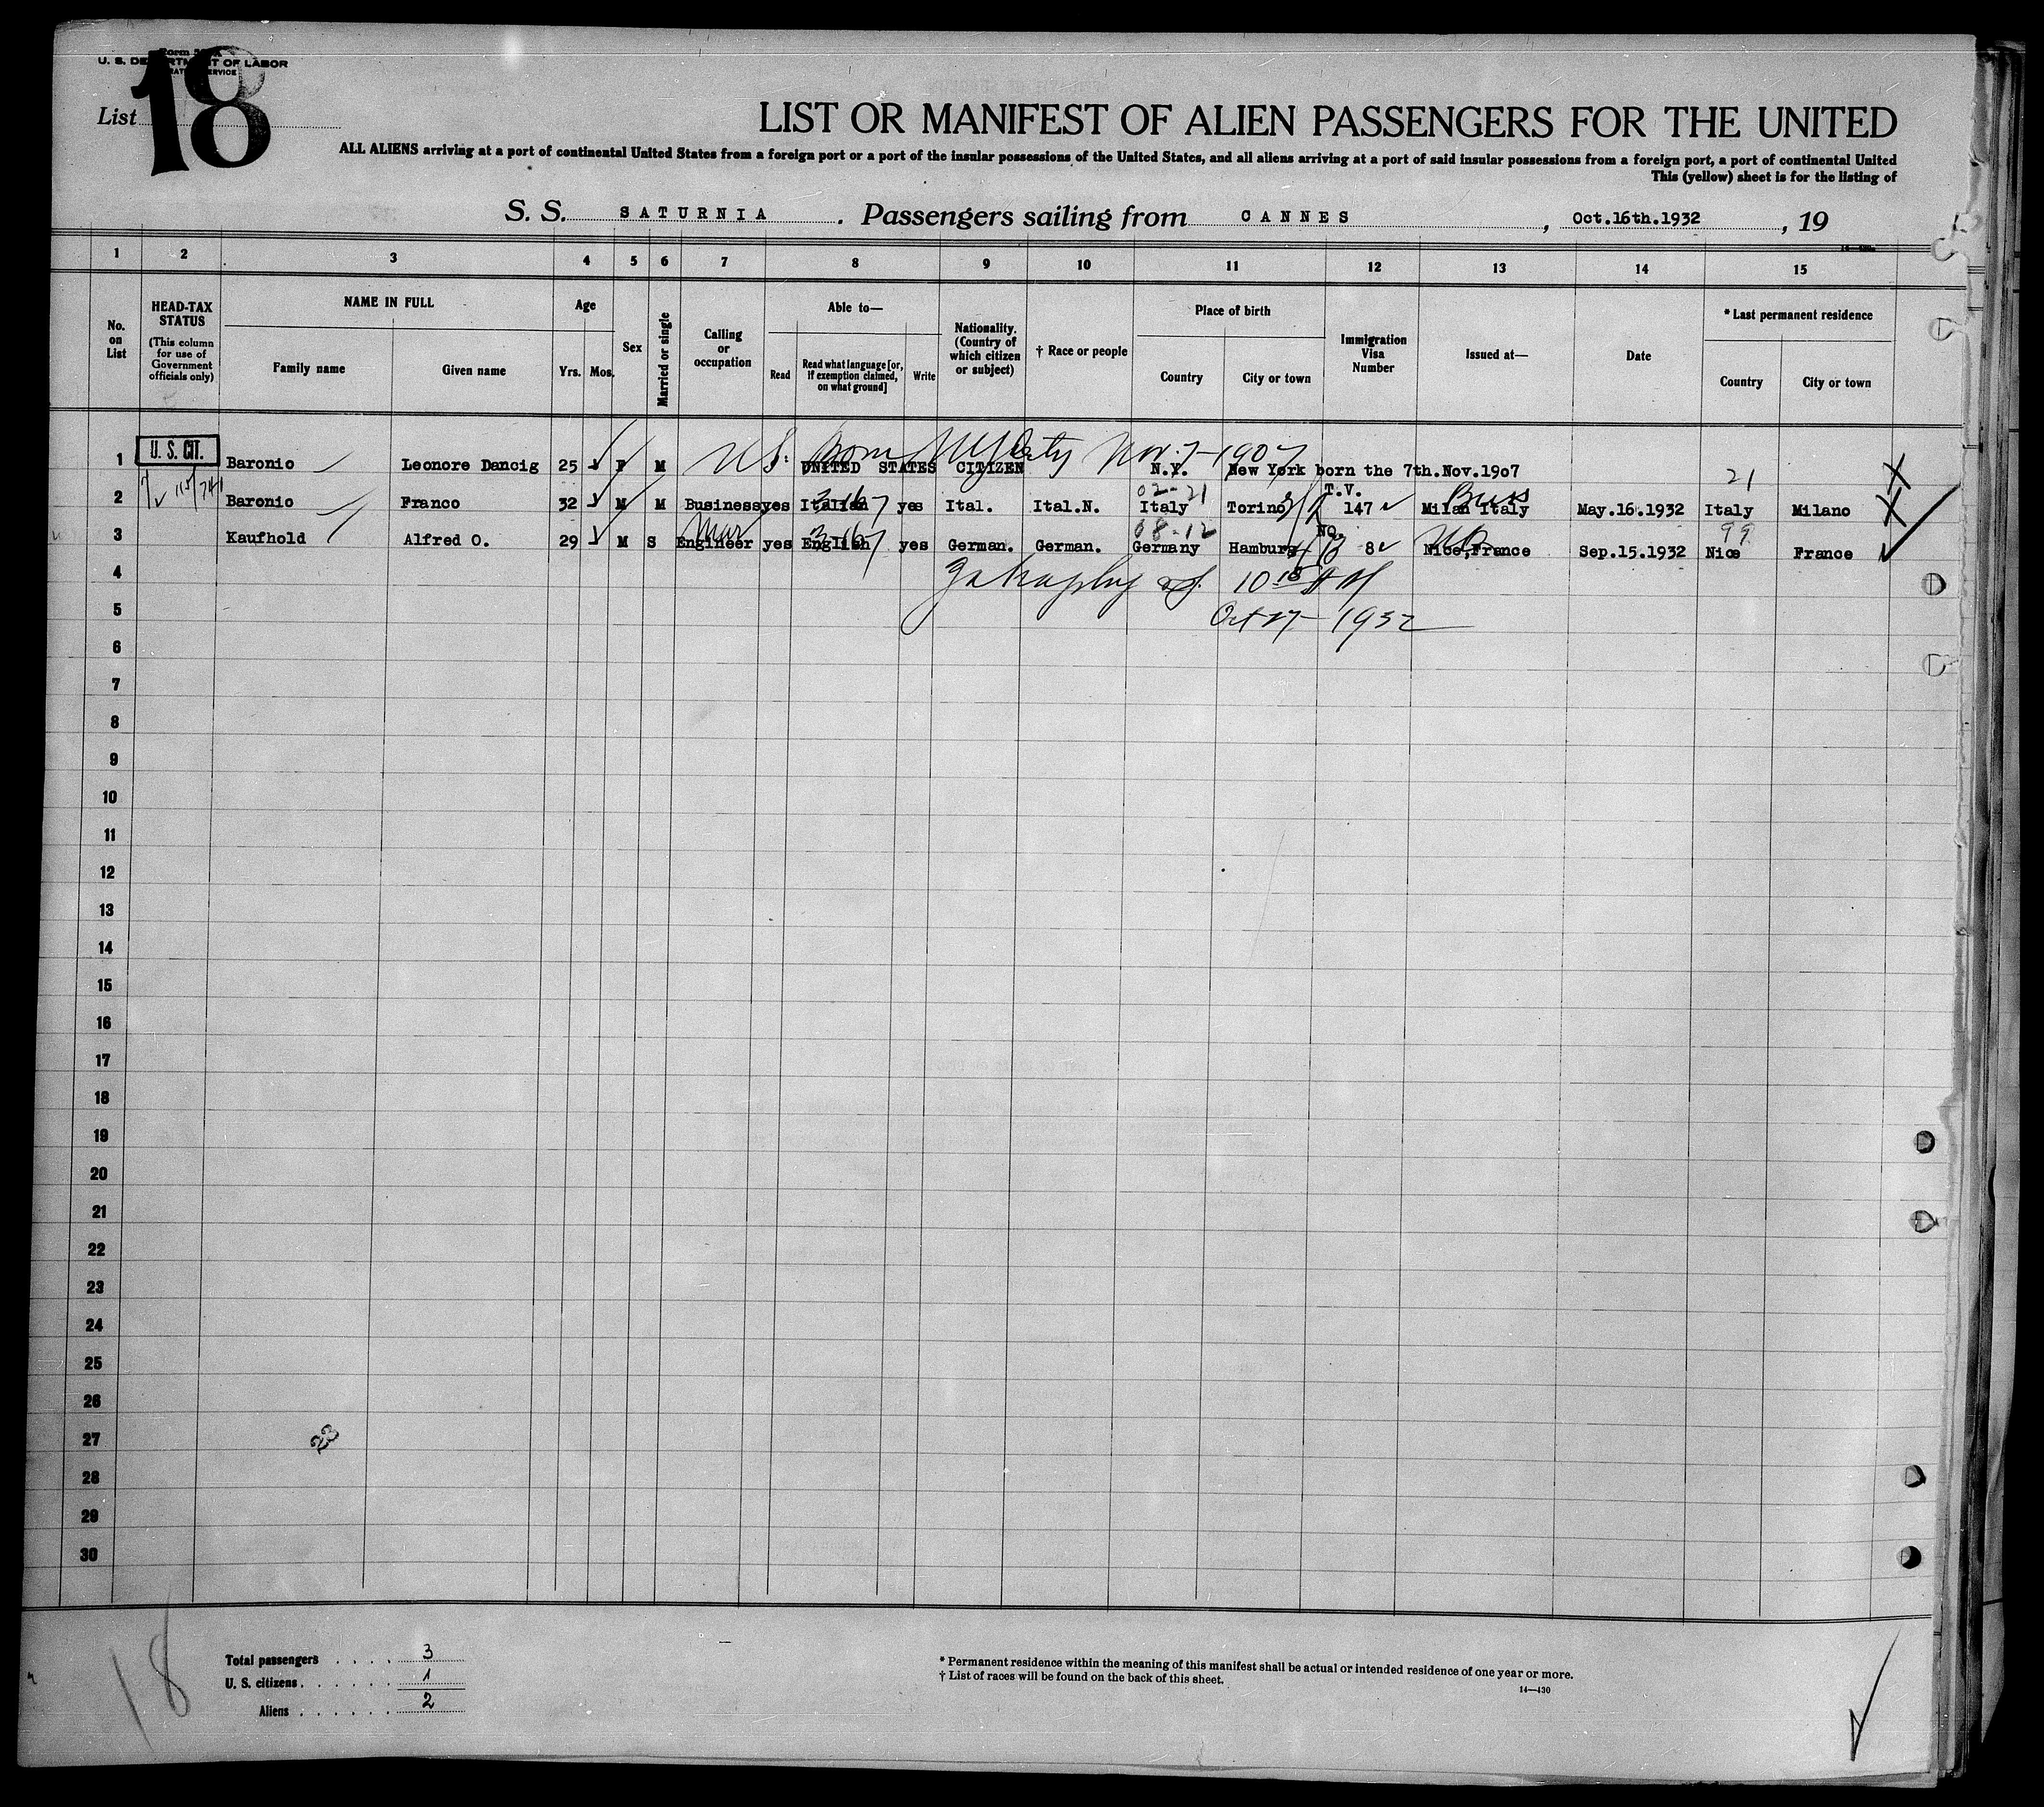 U. S. DEPARTMENT OF LABOR
List 18
LIST OR MANIFEST OF ALIEN PASSENGERS FOR THE UNITED
ALL ALIENS arriving at a port of continental United States from a foreign port or a port of the insular possessions of the United States, and all aliens arriving at a port of said insular possessions from a foreign port, a port of continental United
This (yellow) sheet is for the listing of
S. S. SATURNIA . Passengers sailing from CANNES , Oct.16th.1932 , 19
1 2 3 4 5 6 7 8 9 10 11 12 13 14 15
No. on List
HEAD-TAX STATUS (This column for use of Government officials only)
NAME IN FULL
Family name Given name
Age
Yrs. Mos.
Sex
Married or single
Calling or occupation
Able to—
Read Read what language [or, if exemption claimed, on what ground] Write
Nationality. (Country of which citizen or subject)
† Race or people
Place of birth
Country City or town
Immigration Visa Number
Issued at—
Date
* Last permanent residence
Country City or town
U. S. CIT.
U.S. Born NY City Nov. 7-1907
1 Baronio Leonore Dancig 25 F M UNITED STATES CITIZEN N.Y. New York born the 7th.Nov.1907
02-21 T.V. 21
2 Baronio Franco 32 M M Business yes Italian yes Ital. Ital.N. Italy Torino 147 Milan Italy May.16.1932 Italy Milano
08-12 NO. 99
3 Kaufhold Alfred O. 29 M S Engineer yes English yes German. German. Germany Hamburg 8 Nice,France Sep.15.1932 Nice France
4 10 15 AM
5 Oct 27 - 1932
6
7
8
9
10
11
12
13
14
15
16
17
18
19
20
21
22
23
24
25
26
27
28
29
30
18
Total passengers . . . . 3
U. S. citizens . . . . . . 1
Aliens . . . . . . 2
* Permanent residence within the meaning of this manifest shall be actual or intended residence of one year or more.
† List of races will be found on the back of this sheet.
14—430